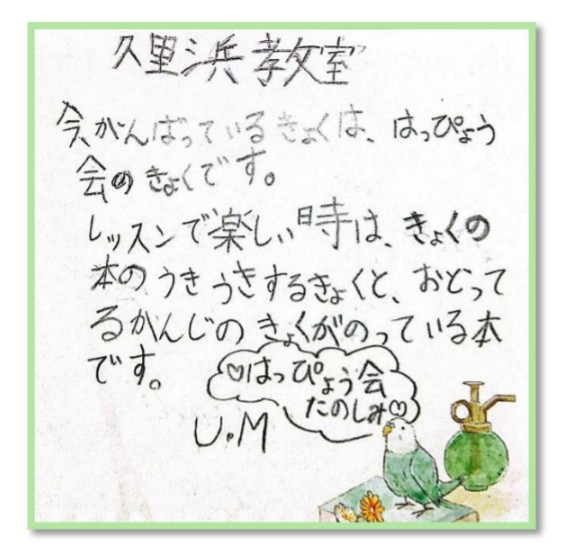 久里浜教室
今、がんばっているきょくは、はっぴょう
会のきょくです。
レッスンで楽しい時は、きょくの
本のうきうきするきょくと、おどって
るかんじのきょくがのっている本
です。
♡はっぴょう会
たのしみ♡
U.M